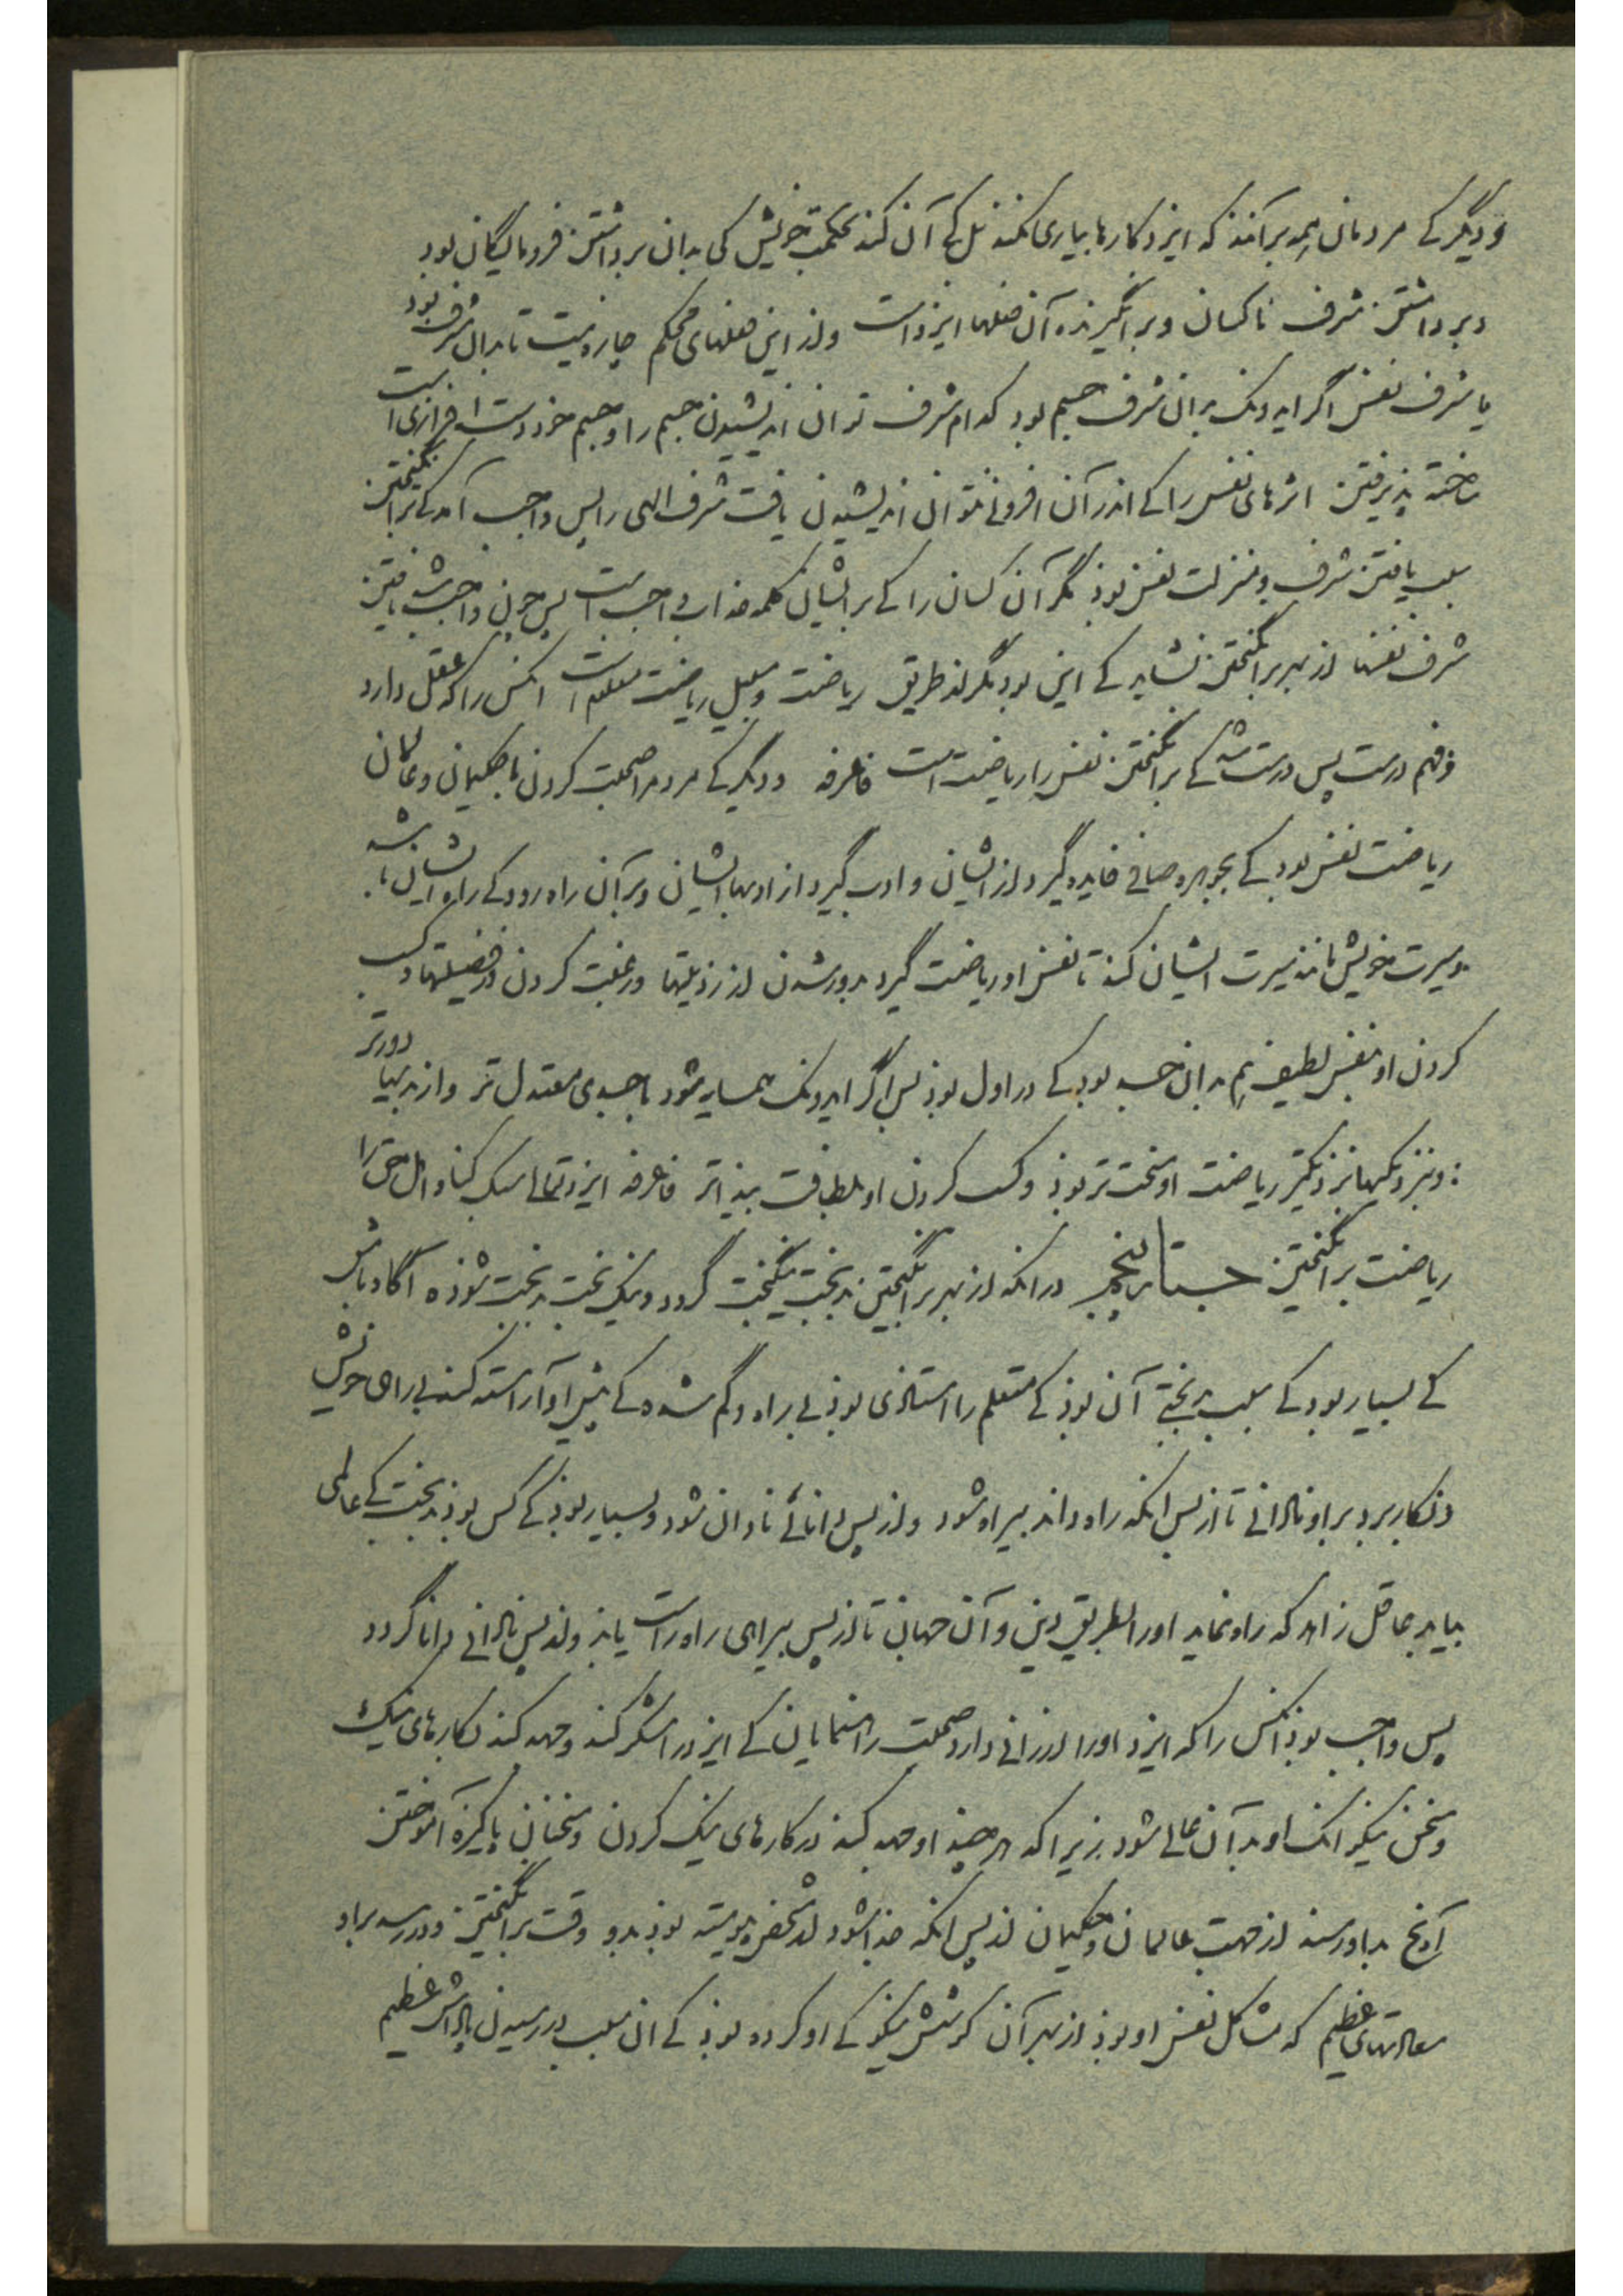 و دیگر کے مردمان همه برآنند که ایزد کارها بیاری نکند بل کے آن کند بحکمت خویش کی بدان برداشتن فرومایگان بود
و برداشتن شرف ناکسان و برانگیزنده آن فعلها ایزد است و از این فعلهای محکم چاره نیست تا بدان شرف بود
یا شرف نفس اگر ایدونک بدان شرف جسم بود کدام شرف توان اندیشیدن جسم را و جسم خود دست افزاری است
ساخته پذیرفتن اثرهای نفس را کے اندر آن افزونی نتوان اندیشیدن یافت شرف الهی را پس واجب آمد کے برانگیختن
سبب یافتن شرف و منزلت نفس بوذ مگر آن کسان را کے بر ایشان کلمه عذاب واجب است پس چون واجب شد یافتن
شرف نفسها از بهر برانگیختن نشاید کے این بود مگر از طریق ریاضت و سبیل ریاضت معلوم است انکس را که عقل دارد
و فهم درست پس درست شد کے برانگیختن نفس را ریاضت است فاعرفه و دیگر کے مردم را صحبت کردن با حکیمان و عالمان
ریاضت نفس بود کے بجوهره صافی فایده گیرد از ایشان و ادب گیرد از ادبهاء ایشان و بر آن راه رود کے راه ایشان باشد
و سیرت خویش مانند سیرت ایشان کند تا نفس او ریاضت گیرد بدور شدن از رذیلتها و رغبت کردن در فضیلتها و کسب
کردن او نفس لطیف هم بدان حسب بود کے در اول بوذ پس اگر ایدونک همسایه شود با جسدی معتدل تر و از بدیها دورتر
و بنزدیکیها نزدیکتر ریاضت او سخت تر بوذ و کسب کردن او بلطافت پیذاتر فاعرفه ایزد تعالی سبک کناد اهل حق را
ریاضت برانگیختن جستار پنجم در انکه از بهر برانگیختن بدبخت نیکبخت گردد و نیک بخت بدبخت شوذ ه آگاه باش
کے بسیار بود کے سبب بدبختی آن بوذ کے متعلم را استاذی بوذ بی راه و گم شده کے پیش او آراسته کند بی راهی خویش
و بکار برد بر او نادانی تا از پس انکه راه داند بیراه شود و از پس دانائی نادان شود و بسیار بوذ کے کس بوذ بدبخت کے عالمی
بیاید عاقل زاهد که راه نماید او را بطریق دین و آن جهان تا از پس بیراهی راه راست یابذ و از پس نادانی دانا گردد
پس واجب بوذ انکس را که ایزد او را ارزانی دارد صحبت راهنمایان کے ایزد را شکر کند و جهد کند بکارهای نیک
و سخن نیکو انک او بدآن عالی شود زیرا که هر چند او جهد کند در کارهای نیک کردن و سخنان پاکیزه آموختن
آنچ بدو رسند از جهت عالمان و حکیمان از پس انکه جذا شود از شخص پیوسته بوذ بدو وقت برانگیختن و در رسد بر او
سعادتهای عظیم که مشاکل نفس او بوذ از بهر آن کوشش نیکو کے او کرده بوذ کے ان سبب در رسیدن پاداش عظیم